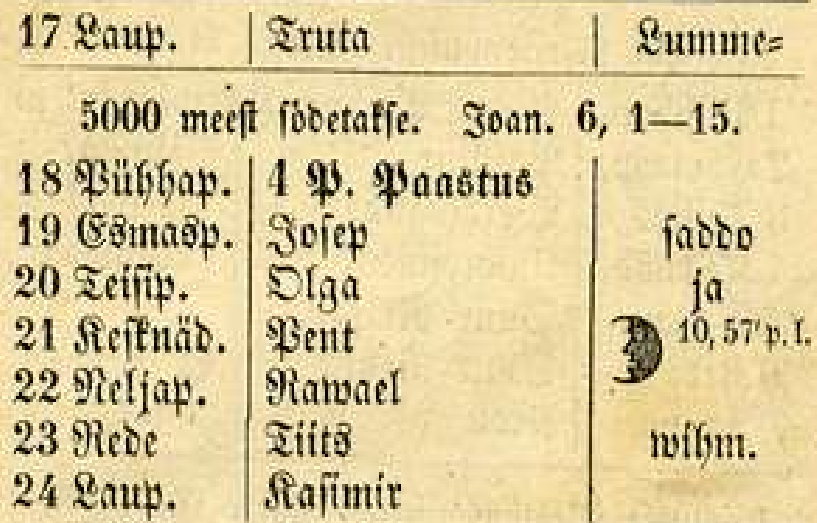 17 Laup. Truta Lumme=
5000 meest södetakse. Joan. 6, 1—15.
18 Pühhap. 4 P. Paastus
19 Esmasp. Josep saddo
20 Teisip. Olga ja
21 Kesknäd. Pent 10, 57' p. l.
22 Neljap. Rawael
23 Rede Tiits wihm.
24 Laup. Kasimir